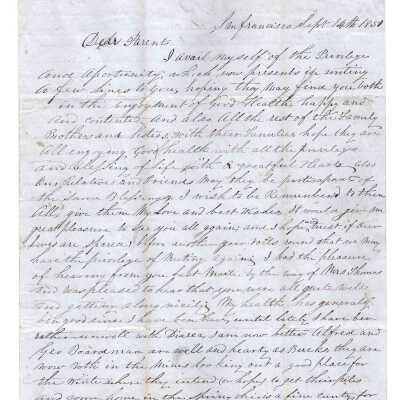 San Francisco Sept 14th 185
Dear Parents
I avail myself of the Privilege
and Oportunity, which now presents in writing
a few lines to you, hoping they may find you both
in the enjoyment of Good Health happy and
and Contented and also All the rest of the Family
Brothers and Sisters, with their Families hope they are
All enjoying Good health with all the privileges
and blessing of life with &
Our Relatives and Friends May they be
the Same Blessing I wish to be Remembered to them
All give them My Love and best Wishes It would give me
great pleasure to See you all again and I hope & trust if our
lives are Spared when another year rolls round that we may
have the privilege of Meeting again I had the pleasure
of hearing from you last by the way of Mrs Thomas
and was pleased to hear that you were all quite well
and getting along nicely My health has generally
been good since I have been here until lately I have been
rather unwell with I am now better Alfred and
Geo Boardman are well and hearty as Bucks they are
now both in the Mines looking out a good place for
the Winter where they intend or hope to get their piles
and come home in the Spring this is a fine country for